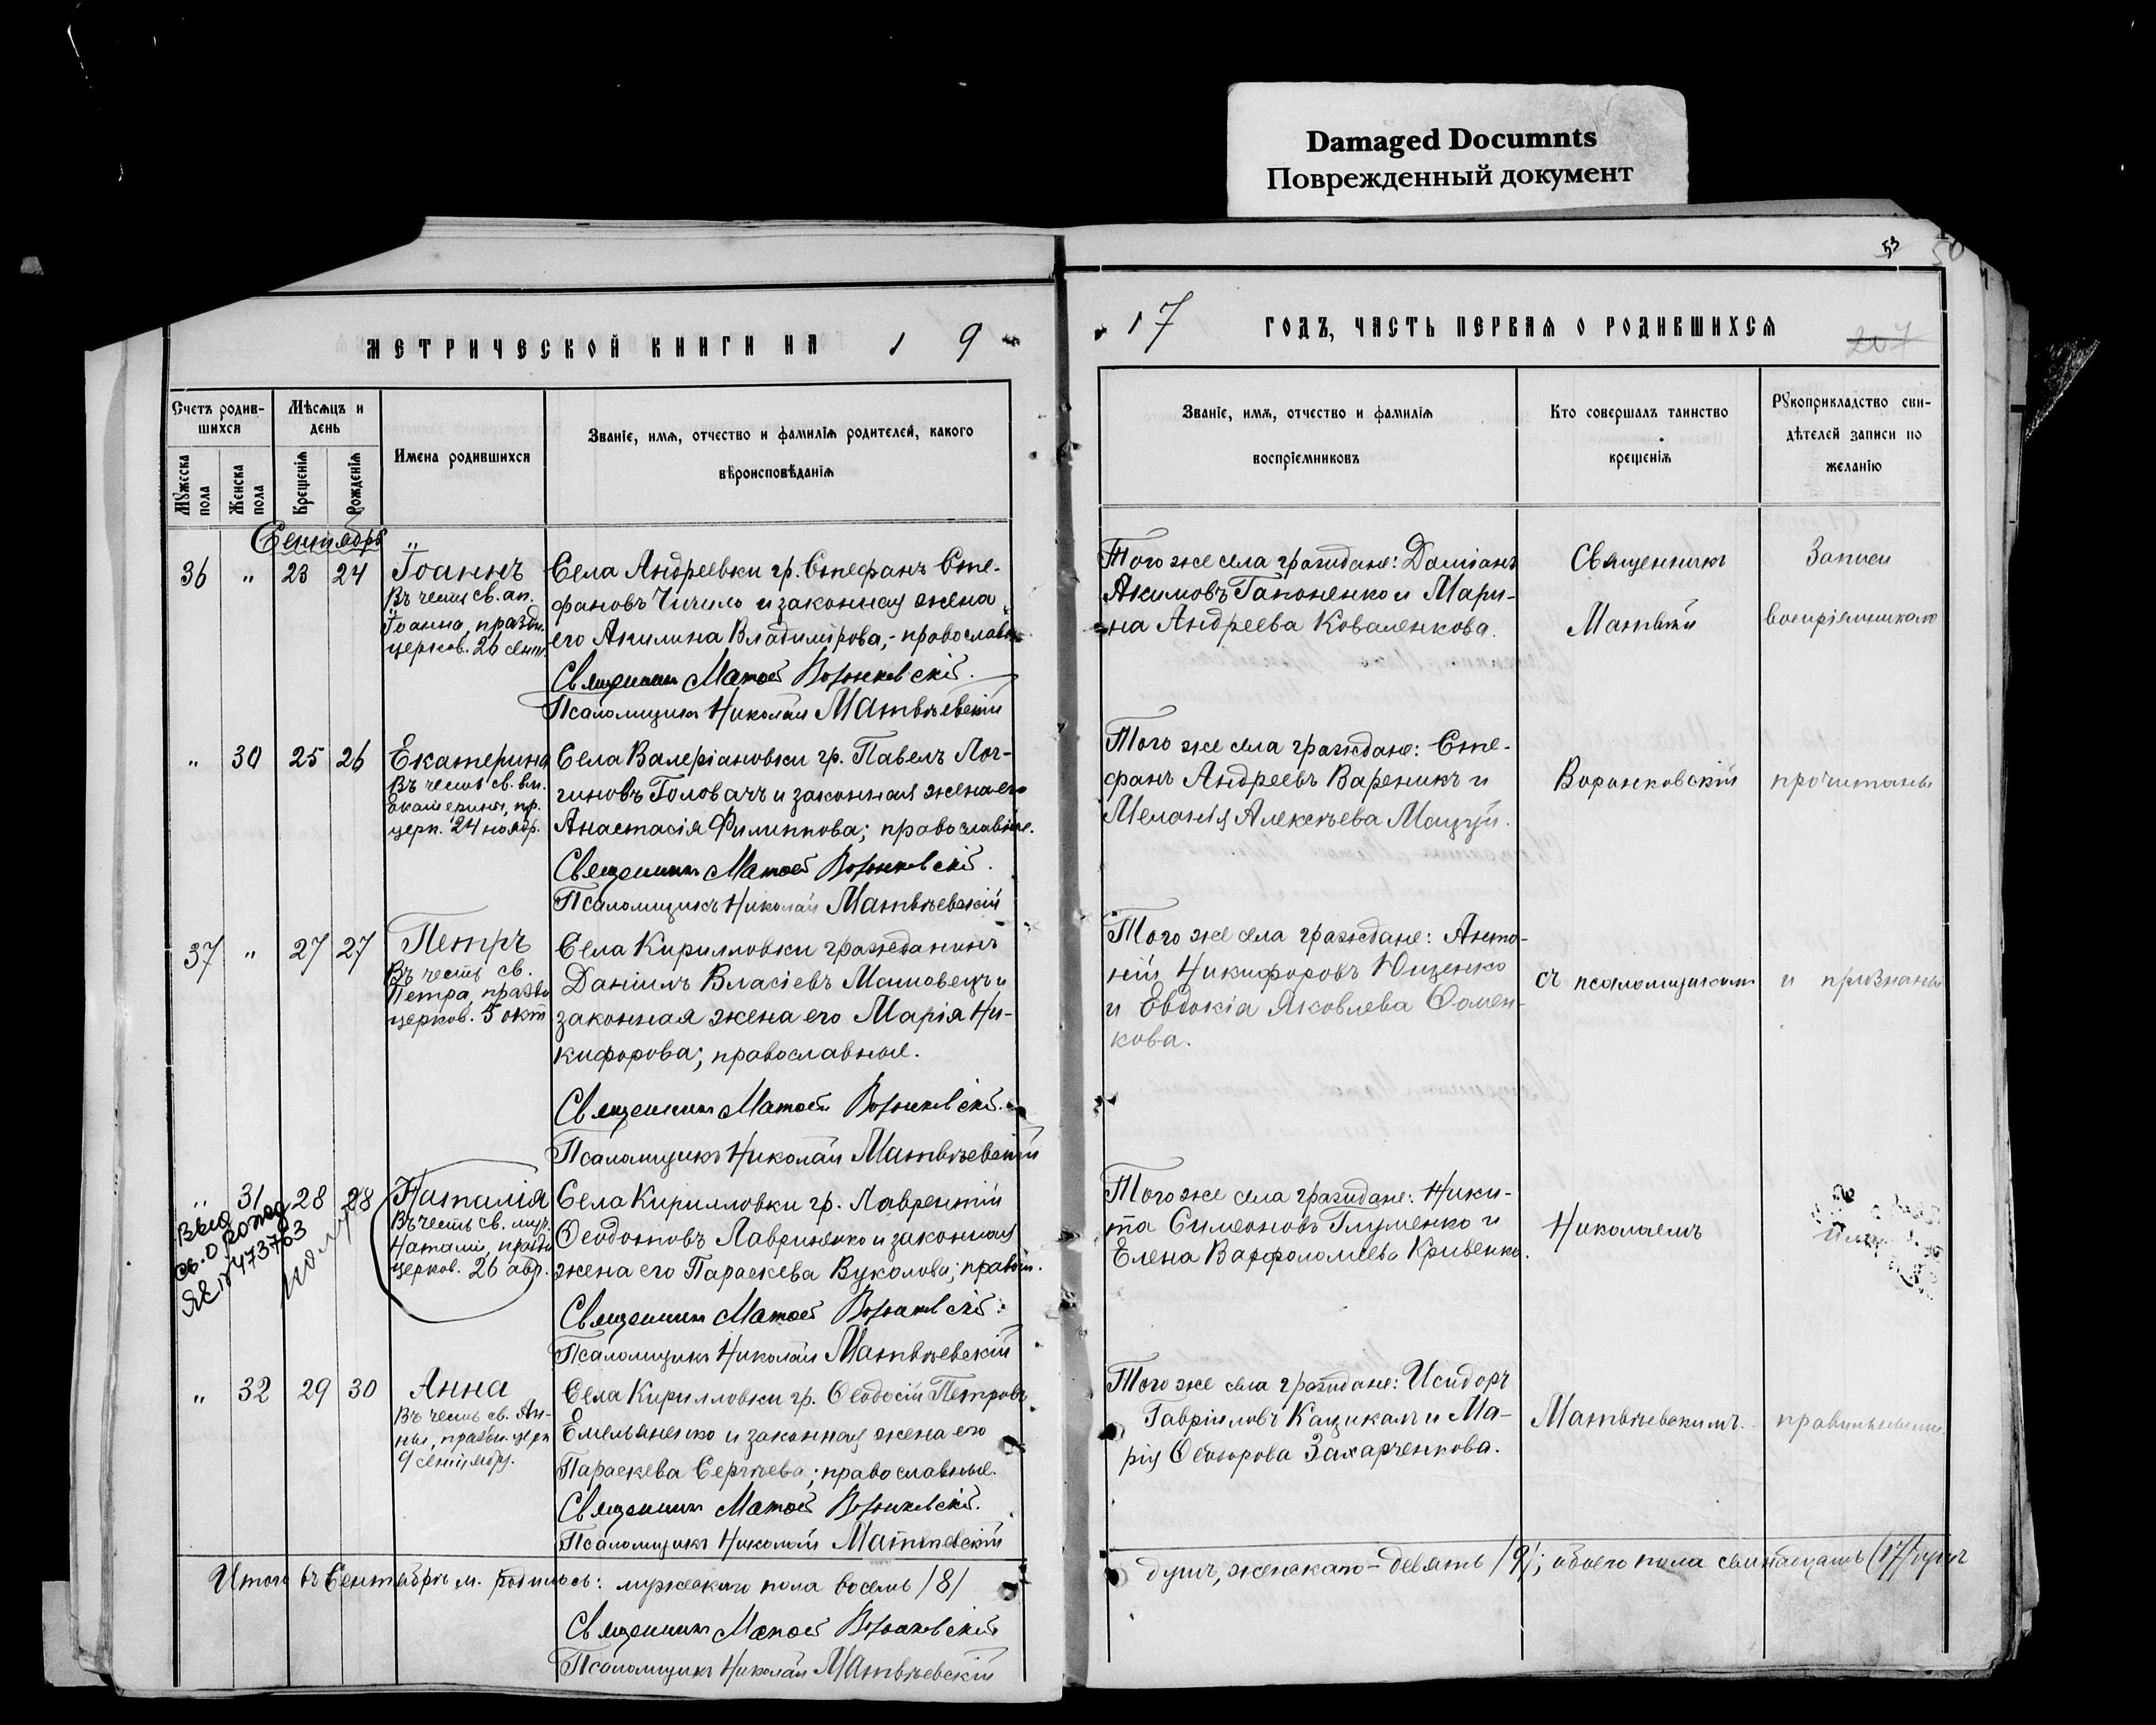 Damaged Documnts
Поврежденный документ
53
50
МЕТРИЧЕСКОЙ КНИГИ НА 1 9
17 ГОДЪ, ЧАСТЬ ПЕРВАЯ О РОДИВШИХСЯ
207
Счетъ родив-
шихся
Мѣсяцъ и
день
Мужеска
пола
Женска
пола
Крещенія
Рожденія
Имена родившихся
Званіе, имя, отчество и фамилія родителей, какого
вѣроисповѣданія
Званіе, имя, отчество и фамилія
воспріемниковъ
Кто совершалъ таинство
крещенія
Рукоприкладство сви-
дѣтелей записи по
желанію
Сентябрь
36 " 23 24
Іоаннъ
Въ честь св. ап.
Іоанна, праздн.
церков. 26 сент.
Села Андреевки гр. Стефанъ Сте-
фановъ Чичиль и законная жена
его Акилина Владимірова,- православн.
Священникъ Матѳей Воронковскій.
Псаломщикъ Николай Матвѣевскій
Того же села граждане: Даміанъ
Акимовъ Гапоненко и Мари-
на Андреева Коваленкова.
Священникъ
Матвѣй
Записи
воспріемникамъ
" 30 25 26
Екатерина
Въ честь св. вм.
Екатерины, пр.
церк. 24 ноябр.
Села Валеріановки гр. Павелъ Лог-
гиновъ Головачъ и законная жена его
Анастасія Филиппова; православные.
Священникъ Матѳей Воронковскій.
Псаломщикъ Николай Матвѣевскій
Того же села граждане: Сте-
фанъ Андреевъ Вареникъ и
Меланія Алексѣева Мацуй.
Воронковскій
прочитаны
37 " 27 27
Петръ
Въ честь св.
Петра, праздн
церков. 5 окт
Села Кирилловки гражданинъ
Даніилъ Власіевъ Машовецъ и
законная жена его Марія Ни-
кифорова; православные.
Священникъ Матѳей Воронковскій.
Псаломщикъ Николай Матвѣевскій
Того же села граждане: Анто-
ній Никифоровъ Ющенко
и Евдокія Яковлева Ѳомен-
кова.
съ псаломщикомъ
и признаны
" 31 28 28
Выд
св. о рожд
ЯЕ № 473763
Наталія
Въ честь св. муч.
Наталіи, праздн
церков. 26 авг.
Села Кирилловки гр. Лаврентій
Ѳеодотовъ Лавриненко и законная
жена его Параскева Вуколова; правосл.
Священникъ Матѳей Воронковскій.
Псаломщикъ Николай Матвѣевскій
Того же села граждане: Ники-
та Симеоновъ Глуменко и
Елена Варфоломѣева Кривенко.
Николаемъ
" 32 29 30
Анна
Въ честь св. Ан-
ны, праздн. церк
9 сентябр.
Села Кирилловки гр. Ѳеодосій Петровъ
Емельяненко и законная жена его
Параскева Сергѣева; православные.
Священникъ Матѳей Воронковскій.
Псаломщикъ Николай Матвѣевскій
Того же села граждане: Исидоръ
Гавріиловъ Кацикалъ и Ма-
рія Ѳеодорова Захарченкова.
Матвѣевскимъ.
правильными.
Итого въ Сентябрѣ м. родилось: мужескаго пола восемь /8/
душъ, женскаго - девять /9/; обоего пола семнадцать (17) душъ
Священникъ Матѳей Воронковскій
Псаломщикъ Николай Матвѣевскій